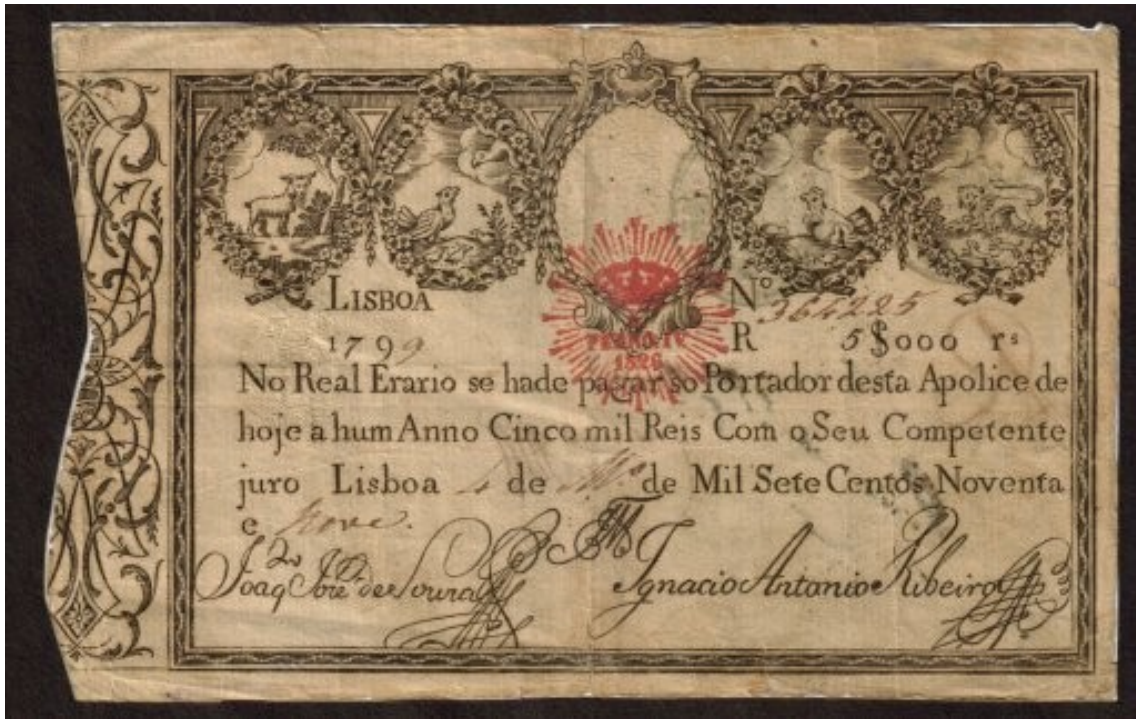 LISBOA
Nº 364225
1799
R 5$000 rs
PEDRO IV
1826
No Real Erario se hade pagar ao Portador desta Apolice de
hoje a hum Anno Cinco mil Reis Com o Seu Competente
juro Lisboa 4 de de Mil Sete Centos Noventa
e Nove.
Joaqm Jose de Souza
Ignacio Antonio Ribeiro